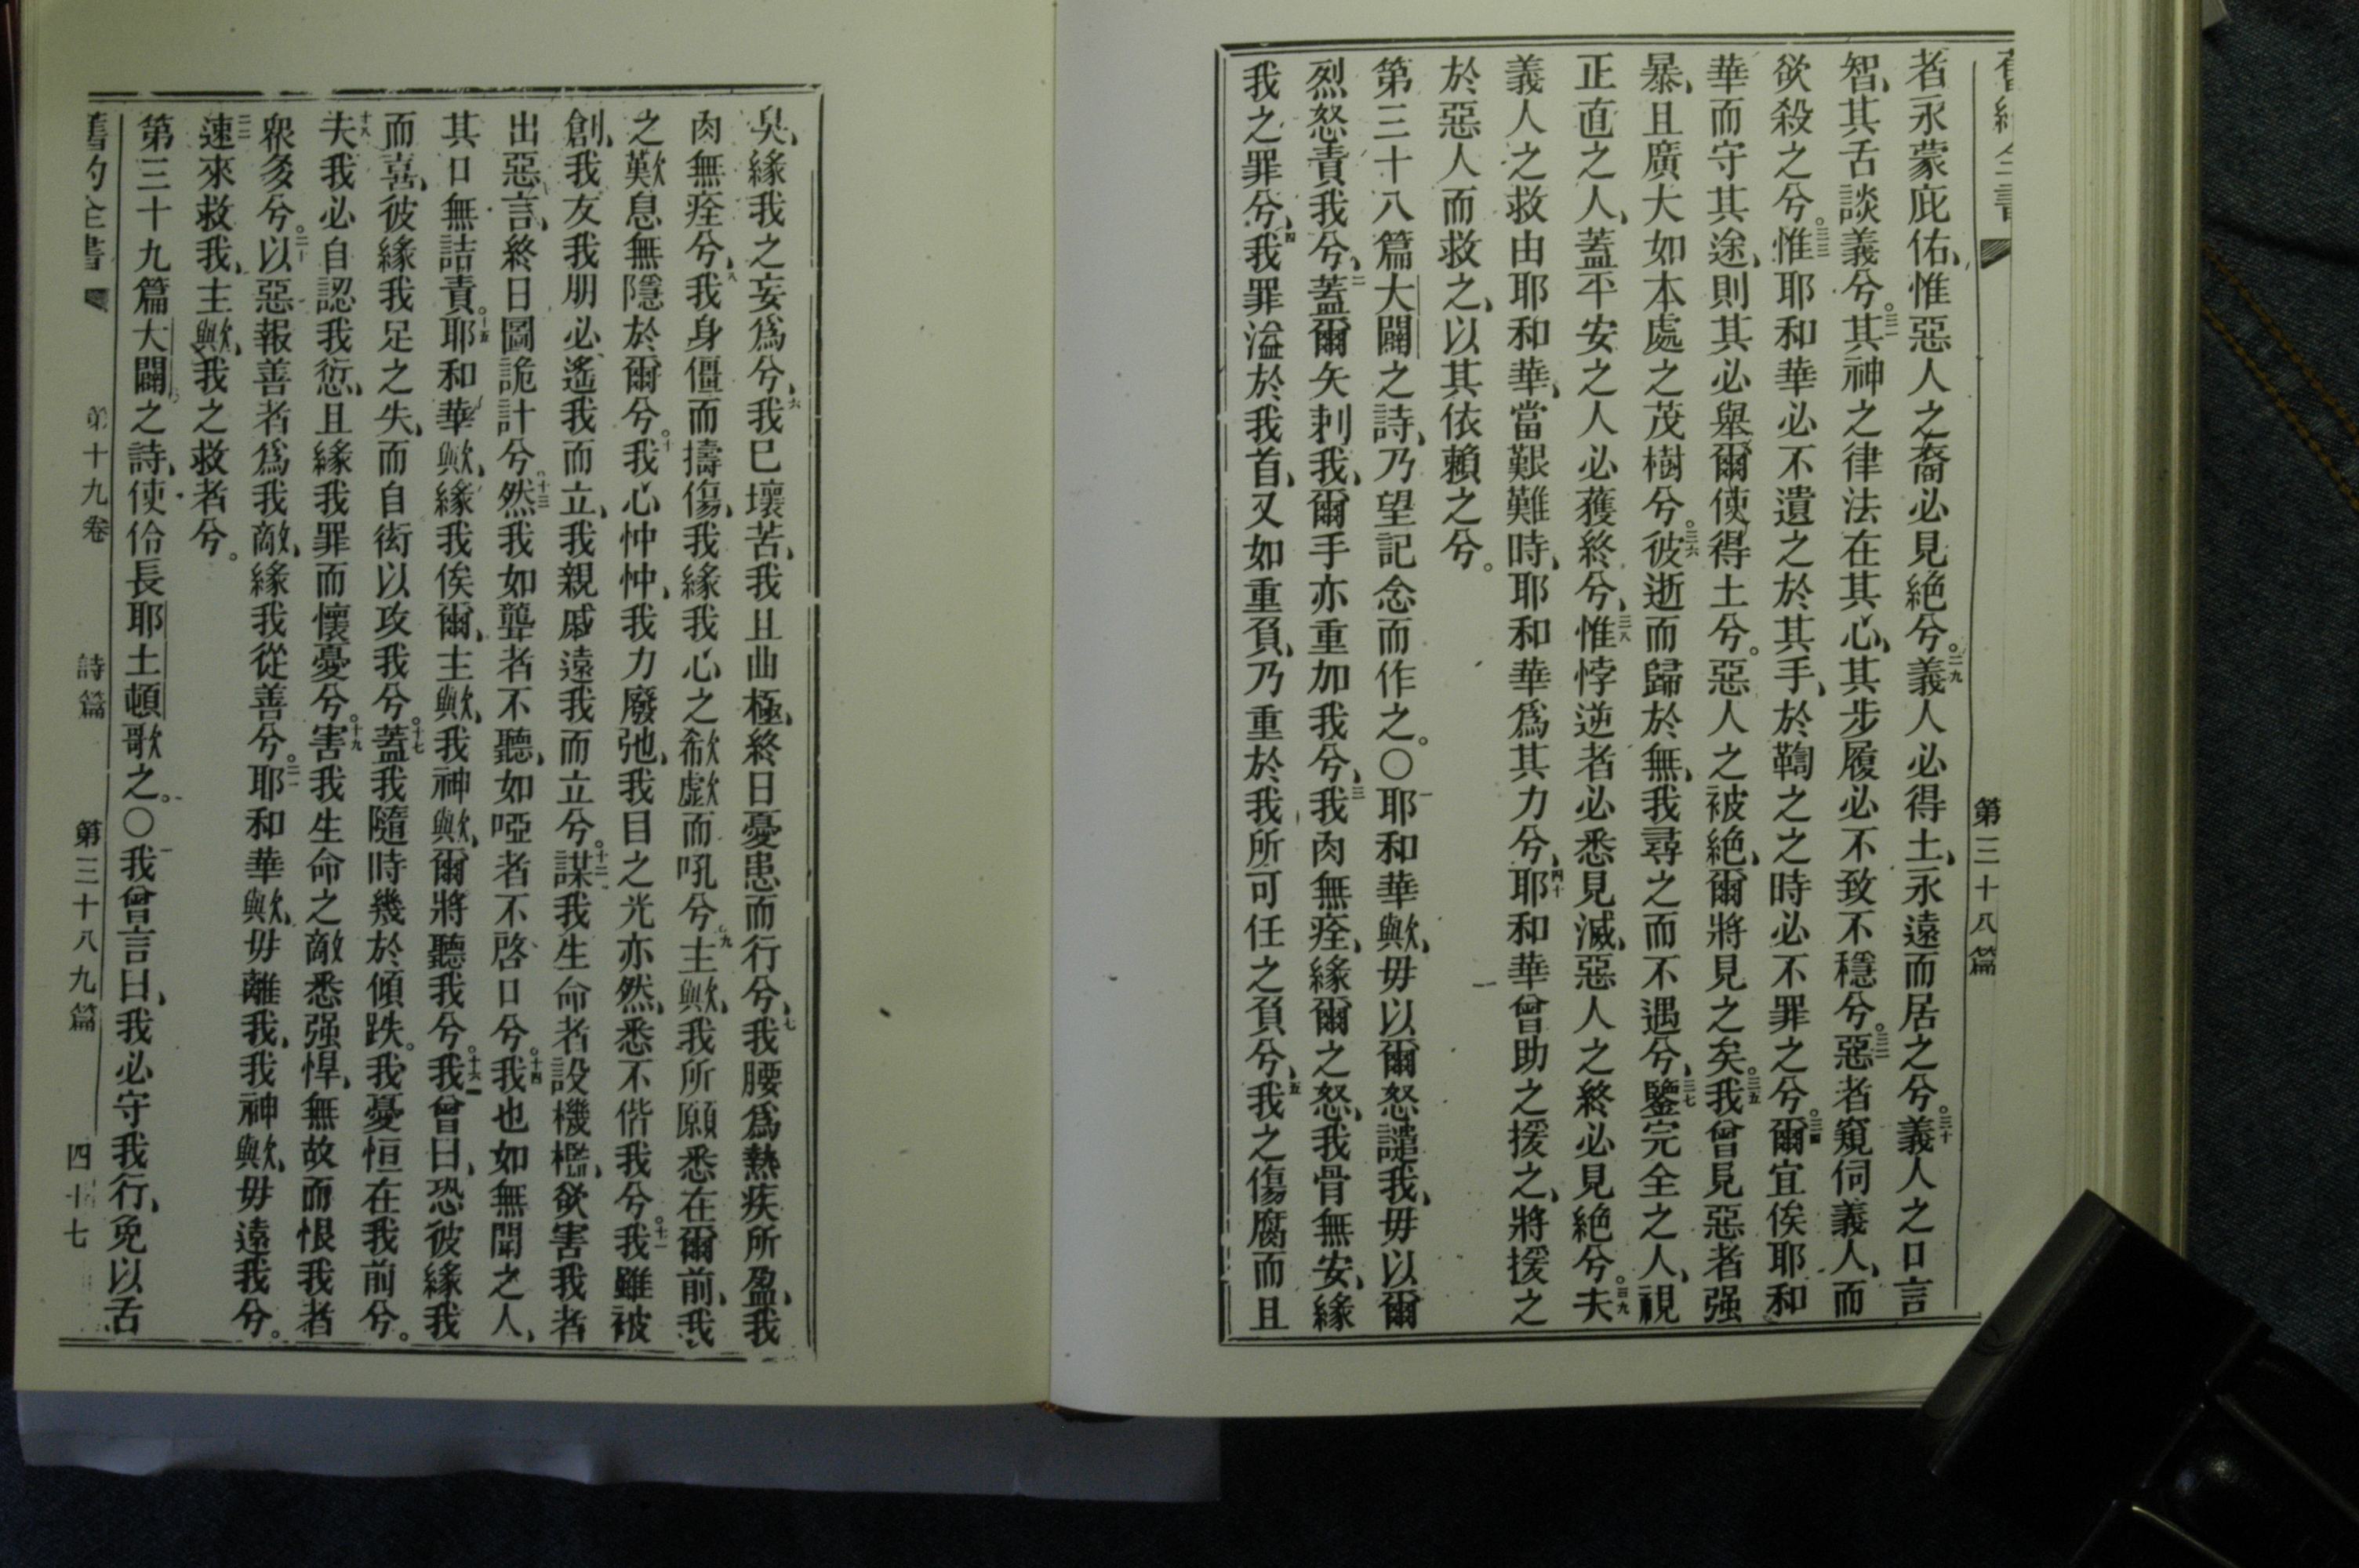 第三十八篇
者永蒙庇佑、惟惡人之裔必見絕兮。二九義人必得土、永遠而居之兮。三十義人之口言
智、其舌談義兮。三一其神之律法在其心、其步履必不致不穩兮。三二惡者窺伺義人、而
欲殺之兮。三三惟耶和華必不遺之於其手、於鞫之之時必不罪之兮。三四爾宜俟耶和
華而守其途、則其必舉爾使得土兮。惡人之被絕、爾將見之矣。三五我曾見惡者强
暴、且廣大如本處之茂樹兮。三六彼逝而歸於無、我尋之而不遇兮、三七鑒完全之人、視
正直之人、蓋平安之人必獲終兮、三八惟悖逆者必悉見滅、惡人之終必見絕兮。三九夫
義人之救由耶和華、當艱難時、耶和華爲其力兮、四十耶和華曾助之援之、將援之
於惡人而救之、以其依賴之兮。
第三十八篇大闢之詩、乃望記念而作之。〇一耶和華歟、毋以爾怒譴我、毋以爾
烈怒責我兮、二蓋爾矢刺我、爾手亦重加我兮、三我肉無痊、緣爾之怒、我骨無安、緣
我之罪兮、四我罪溢於我首、又如重負、乃重於我所可任之負兮、五我之傷腐而且
臭、緣我之妄爲兮、六我已壞苦、我且曲極、終日憂患而行兮、七我腰爲熱疾所盈、我
肉無痊兮、八我身僵而擣傷、我緣我心之欷歔而吼兮。九主歟、我所願悉在爾前、我
之歎息無隱於爾兮。十我心忡忡、我力廢弛、我目之光亦然、悉不偕我兮。十一我雖被
創、我友我朋必遙我而立、我親戚遠我而立兮。十二謀我生命者設機檻、欲害我者
出惡言、終日圖詭計兮。十三然我如聾者不聽、如啞者不啓口兮。十四我也如無聞之人、
其口無詰責。十五耶和華歟、緣我俟爾、主歟、我神歟、爾將聽我兮。十六我曾曰、恐彼緣我
而喜、彼緣我足之失、而自衒以攻我兮。十七蓋我隨時幾於傾跌。我憂恒在我前兮。
十八夫我必自認我愆、且緣我罪而懷憂兮。十九害我生命之敵悉强悍、無故而恨我者
衆多兮。二十以惡報善者爲我敵、緣我從善兮。二一耶和華歟、毋離我、我神歟、毋遠我兮。
二二速來救我、主歟、我之救者兮。
第三十九篇大闢之詩、使伶長耶土頓歌之。〇一我曾言曰、我必守我行、免以舌
舊約全書 第十九卷 詩篇 第三十八九篇 四十七